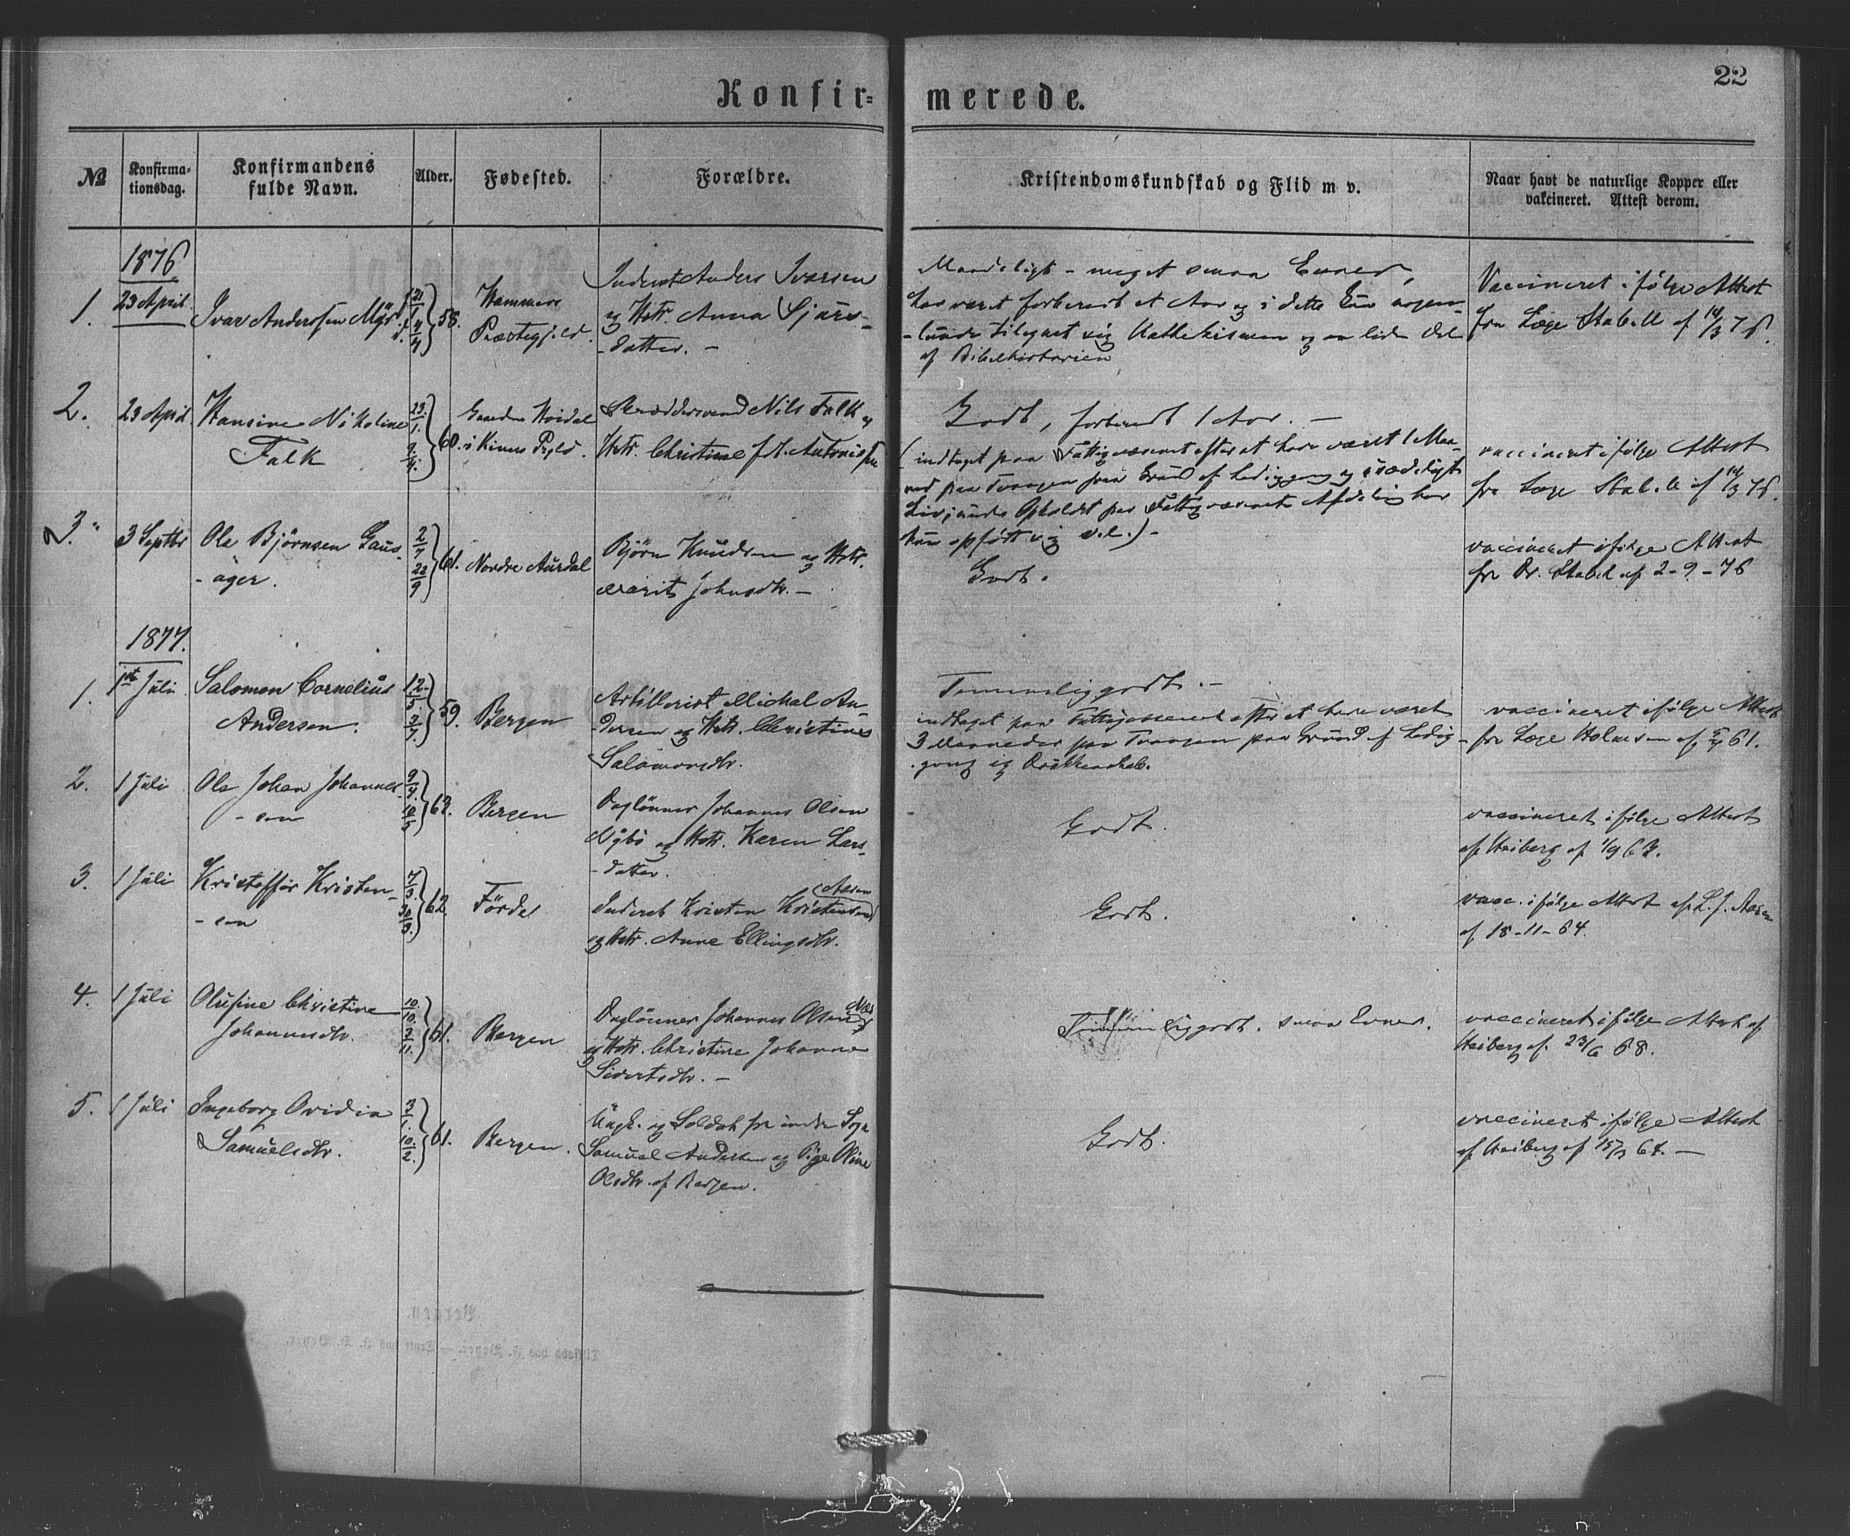 22
Konfir= merede.
№ Konfirma-tionsdag. Konfirmandens fulde Navn. Alder. Fødested. Forældre. Kristendomskundskab og Flid m v. Naar havt de naturlige Kopper eller vakcineret. Attest derom.
1876
1. 23 April
Ivar Andersen
21/1 4/4 58.
Hammers
Præstegjeld.
Inderst Anders Ivarsen
og Hstr. Anna Sjurs-
-datter. -
Maadeligt - meget smaa Evner,
har været forberedt et Aar og i dette Kun nogen-
-lunde tilegnet sig Kathekismen og en liden Del
af Bibelhistorien
Vaccineret ifølge Attest
fra Læge Stabell af 14/3 76.
2. 23 April
Hansine Nikoline
Falk
60.
i Kinns Prgld.
Skræddersvend Nils Falk og
Hstr. Christine f. Antonisen
Godt, forberedt 1 Aar. -
(indtaget paa Fattigvæsenet efter at have været 1 Maa-
ned paa Tvangen paa Grund af Lediggang og usædeligt
Liv, under Opholdet paa Fattigvæsenets Afdeling har
hun opført sig vel.) -
vaccineret ifølge Attest
fra Læge Stabell af 14/3 76.
3. 3 Septbr
Ole Björnsen Gaus-
-ager.
2/7 22/9 61.
Nordre Aurdal
Björn Knudsen og Hstr.
Marit Johnsdtr. -
Godt.
vaccineret ifølge Attest
fra Dr. Stabell af 2-9-76
1877.
1. 1st Juli
Salomon Cornelius
Andersen.
59.
Bergen
Artillerist Michal An-
dersen og Hstr. Christine
Salomonsdtr.
Temmeliggodt. -
indtaget paa Fattigvæsenet efter at have været
3 Maaneder paa Tvangen paa Grund af Ledig-
gang og Drukkenskab.
vaccineret ifølge Attest
fra Læge Holmsen af 61.
2. 1 Juli
Ole Johan Johannes-
-sen
9/4 10/5 63.
Bergen
Daglönner Johannes Olsen
Nybö og Hstr. Karen Lars-
-datter.
Godt.
vaccineret ifølge Attest
af Heiberg af 1/9 63.
3. 1 Juli
Kristoffer Kristen-
-sen
7/3 30/3 62.
Förde
Inderst Kristen Kristensen (Aasen)
og Hstr. Anne Ellingsdtr.
Godt.
vacc. ifølge Attest af L. J. Aasen
af 18-11-64.
4. 1 Juli
Olufine Christine
Johannesdtr.
10/10. 3/11. 61.
Bergen
Daglönner Johannes Olsen Næs
og Hstr. Christine Johanne
Sivertsdtr. -
Temmeliggodt. smaa Evner.
vaccineret ifølge Attest af
Heiberg af. 23/6 68.
5. 1 Juli
Ingeborg Ovidia
Samuelsdtr.
3/1. 10/2. 61.
Bergen.
Ungk. og Soldat fra indre Sogn
Samuel Andersen og Pige Oline
Olsdtr. af Bergen.
Godt.
vaccineret ifølge Attest
af Heiberg af 64. -